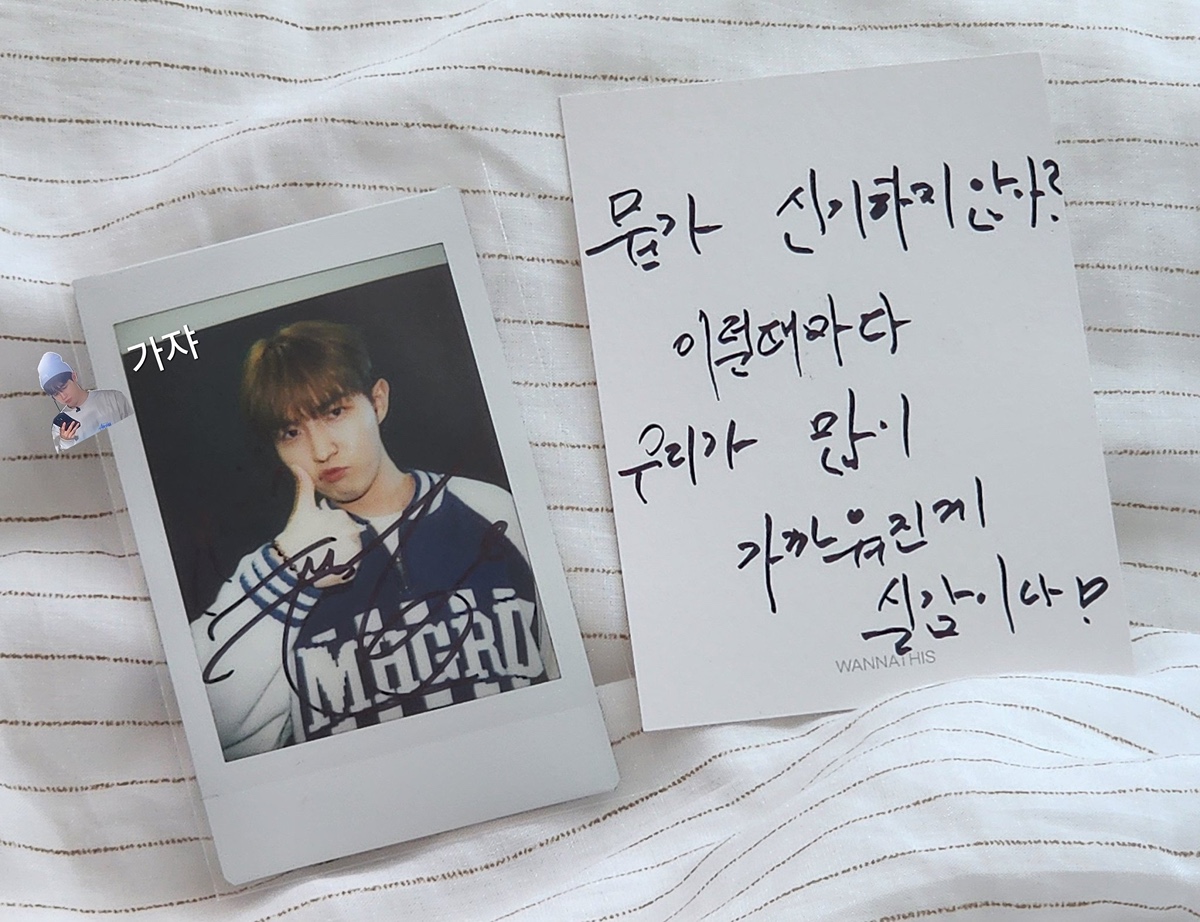 가쟈
MACRO
뭔가 신기하지않아?
이럴때마다
우리가 많이
가까워진게
실감이나!
WANNATHIS